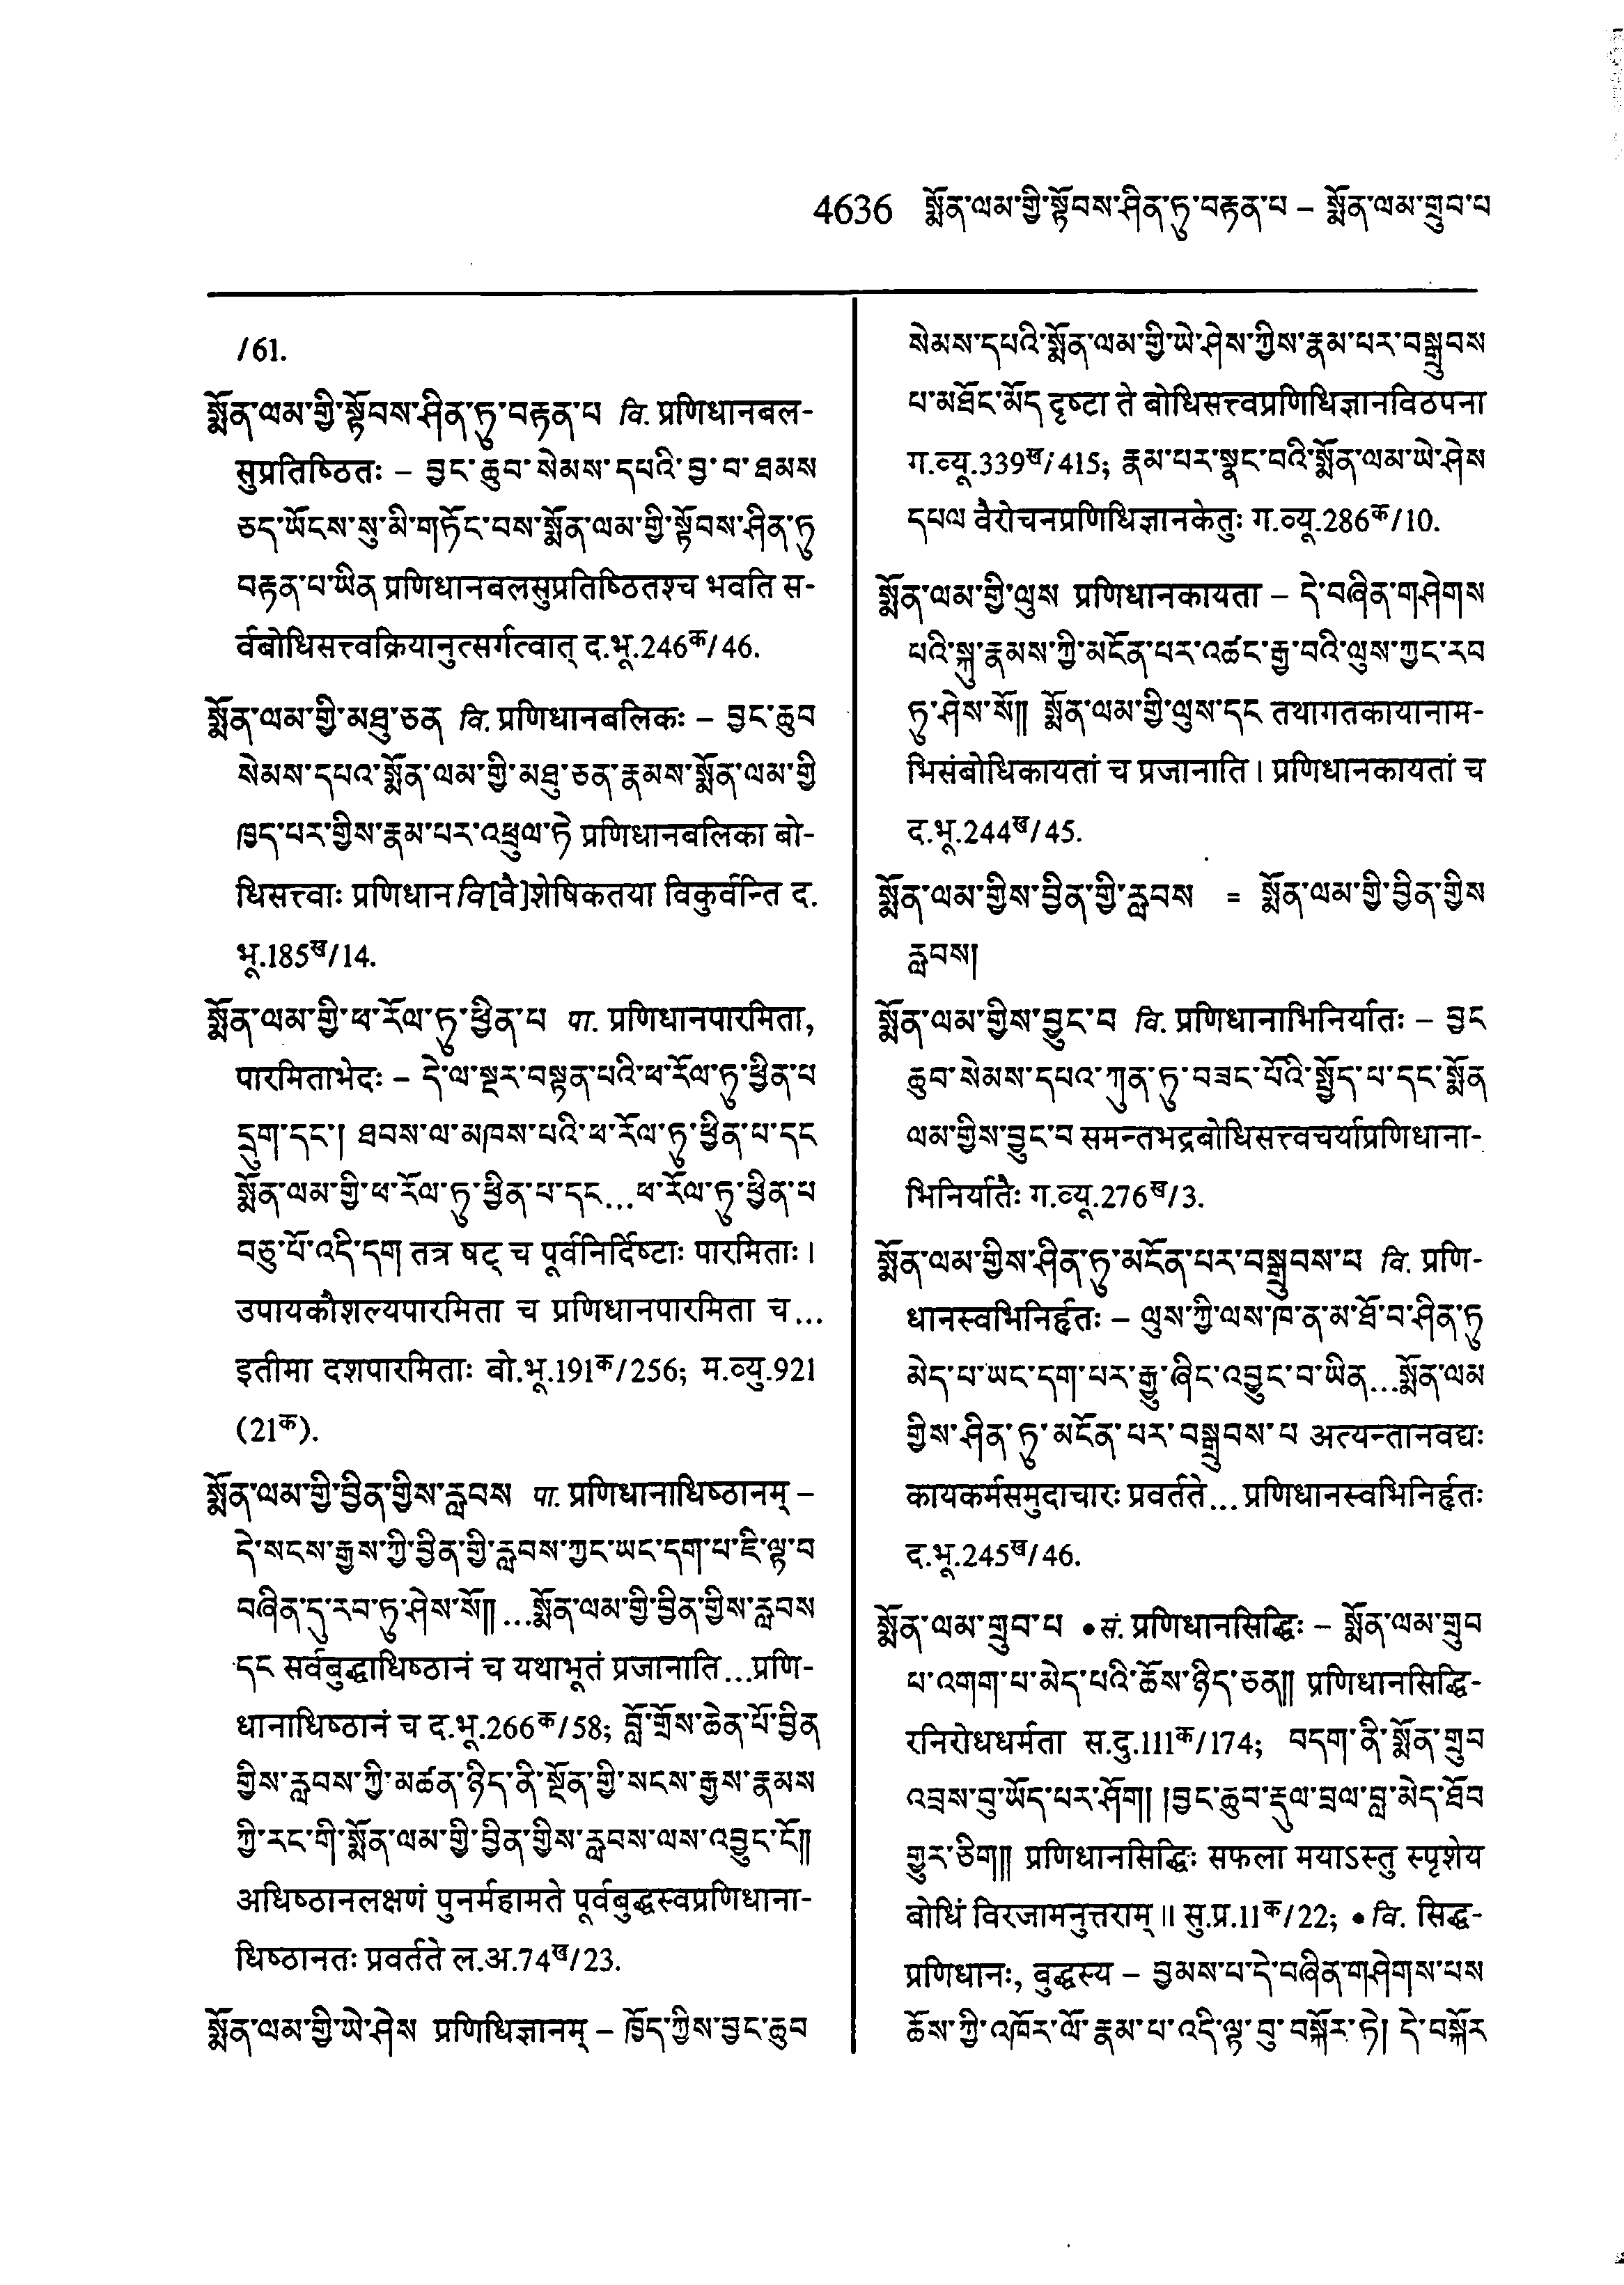 4636 སྨོན་ལམ་གྱི་སྟོབས་ཤིན་ཏུ་བརྟན་པ – སྨོན་ལམ་གྲུབ་པ
/61.
སྨོན་ལམ་གྱི་སྟོབས་ཤིན་ཏུ་བརྟན་པ वि. प्रणिधानबल-
सुप्रतिष्ठितः – བྱང་ཆུབ་སེམས་དཔའི་བྱ་བ་ཐམས
ཅད་ཡོངས་སུ་མི་གཏོང་བས་སྨོན་ལམ་གྱི་སྟོབས་ཤིན་ཏུ
བརྟན་པ་ཡིན प्रणिधानबलसुप्रतिष्ठितश्च भवति स-
र्वबोधिसत्त्वक्रियानुत्सर्गत्वात् द.भू.246क/46.
སྨོན་ལམ་གྱི་མཐུ་ཅན वि. प्रणिधानबलिकः – བྱང་ཆུབ
སེམས་དཔའ་སྨོན་ལམ་གྱི་མཐུ་ཅན་རྣམས་སྨོན་ལམ་གྱི
ཁྱད་པར་གྱིས་རྣམ་པར་འཕྲུལ་ཏེ प्रणिधानबलिका बो-
धिसत्त्वाः प्रणिधानवि[वै]शेषिकतया विकुर्वन्ति द.
भू.185ख/14.
སྨོན་ལམ་གྱི་ཕ་རོལ་ཏུ་ཕྱིན་པ पा. प्रणिधानपारमिता,
पारमिताभेदः – དེ་ལ་སྔར་བསྟན་པའི་ཕ་རོལ་ཏུ་ཕྱིན་པ
དྲུག་དང་། ཐབས་ལ་མཁས་པའི་ཕ་རོལ་ཏུ་ཕྱིན་པ་དང
སྨོན་ལམ་གྱི་ཕ་རོལ་ཏུ་ཕྱིན་པ་དང...ཕ་རོལ་ཏུ་ཕྱིན་པ
བཅུ་པོ་འདི་དག तत्र षट् च पूर्वनिर्दिष्टाः पारमिताः।
उपायकौशल्यपारमिता च प्रणिधानपारमिता च...
इतीमा दशपारमिताः बो.भू.191क/256; म.व्यु.921
(21क).
སྨོན་ལམ་གྱི་བྱིན་གྱིས་རླབས पा. प्रणिधानाधिष्ठानम् –
དེ་སངས་རྒྱས་ཀྱི་བྱིན་གྱི་རླབས་ཀྱང་ཡང་དག་པ་ཇི་ལྟ་བ
བཞིན་དུ་རབ་ཏུ་ཤེས་སོ།། ...སྨོན་ལམ་གྱི་བྱིན་གྱིས་རླབས
དང सर्वबुद्धाधिष्ठानं च यथाभूतं प्रजानाति...प्रणि-
धानाधिष्ठानं च द.भू.266क/58; བློ་གྲོས་ཆེན་པོ་བྱིན
གྱིས་རླབས་ཀྱི་མཚན་ཉིད་ནི་སྔོན་གྱི་སངས་རྒྱས་རྣམས
ཀྱི་རང་གི་སྨོན་ལམ་གྱི་བྱིན་གྱིས་རླབས་ལས་འབྱུང་ངོ༎
अधिष्ठानलक्षणं पुनर्महामते पूर्वबुद्धस्वप्रणिधाना-
धिष्ठानतः प्रवर्तते ल.अ.74ख/23.
སྨོན་ལམ་གྱི་ཡེ་ཤེས प्रणिधिज्ञानम् – ཁྱོད་ཀྱིས་བྱང་ཆུབ
སེམས་དཔའི་སྨོན་ལམ་གྱི་ཡེ་ཤེས་ཀྱིས་རྣམ་པར་བསྒྲུབས
པ་མཐོང་མོད दृष्टा ते बोधिसत्त्वप्रणिधिज्ञानविठपना
ग.व्यू.339ख/415; རྣམ་པར་སྣང་བའི་སྨོན་ལམ་ཡེ་ཤེས
དཔལ वैरोचनप्रणिधिज्ञानकेतुः ग.व्यू.286क/10.
སྨོན་ལམ་གྱི་ལུས प्रणिधानकायता – དེ་བཞིན་གཤེགས
པའི་སྐུ་རྣམས་ཀྱི་མངོན་པར་འཚང་རྒྱ་བའི་ལུས་ཀྱང་རབ
ཏུ་ཤེས་སོ།། སྨོན་ལམ་གྱི་ལུས་དང तथागतकायानाम-
भिसंबोधिकायतां च प्रजानाति। प्रणिधानकायतां च
द.भू.244ख/45.
སྨོན་ལམ་གྱིས་བྱིན་གྱི་རླབས = སྨོན་ལམ་གྱི་བྱིན་གྱིས
རླབས།
སྨོན་ལམ་གྱིས་བྱུང་བ वि. प्रणिधानाभिनिर्यातः – བྱང
ཆུབ་སེམས་དཔའ་ཀུན་ཏུ་བཟང་པོའི་སྤྱོད་པ་དང་སྨོན
ལམ་གྱིས་བྱུང་བ समन्तभद्रबोधिसत्त्वचर्याप्रणिधाना-
भिनिर्यातैः ग.व्यू.276ख/3.
སྨོན་ལམ་གྱིས་ཤིན་ཏུ་མངོན་པར་བསྒྲུབས་པ वि. प्रणि-
धानस्वभिनिर्हृतः – ལུས་ཀྱི་ལས་ཁ་ན་མ་ཐོ་བ་ཤིན་ཏུ
མེད་པ་ཡང་དག་པར་རྒྱུ་ཞིང་འབྱུང་བ་ཡིན...སྨོན་ལམ
གྱིས་ཤིན་ཏུ་མངོན་པར་བསྒྲུབས་པ अत्यन्तानवद्यः
कायकर्मसमुदाचारः प्रवर्तते...प्रणिधानस्वभिनिर्हृतः
द.भू.245ख/46.
སྨོན་ལམ་གྲུབ་པ •सं. प्रणिधानसिद्धिः – སྨོན་ལམ་གྲུབ
པ་འགག་པ་མེད་པའི་ཆོས་ཉིད་ཅན།། प्रणिधानसिद्धि-
रनिरोधधर्मता स.दु.111क/174; བདག་ནི་སྨོན་གྲུབ
འབྲས་བུ་ཡོད་པར་ཤོག། །བྱང་ཆུབ་རྡུལ་བྲལ་བླ་མེད་ཐོབ
གྱུར་ཅིག།། प्रणिधानसिद्धिः सफला मयाऽस्तु स्पृशेय
बोधिं विरजामनुत्तराम्॥ सु.प्र.11क/22; •वि. सिद्ध-
प्रणिधानः, बुद्धस्य – བྱམས་པ་དེ་བཞིན་གཤེགས་པས
ཆོས་ཀྱི་འཁོར་ལོ་རྣམ་པ་འདི་ལྟ་བུ་བསྐོར་ཏེ། དེ་བསྐོར